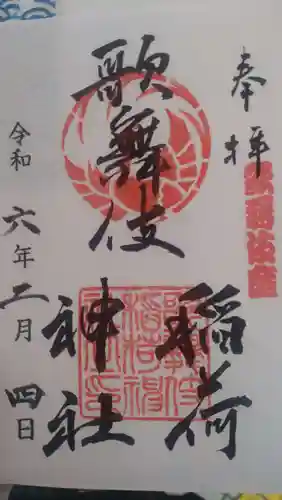 奉拝
歌舞伎座
歌舞伎
稲荷
神社
令和六年二月四日